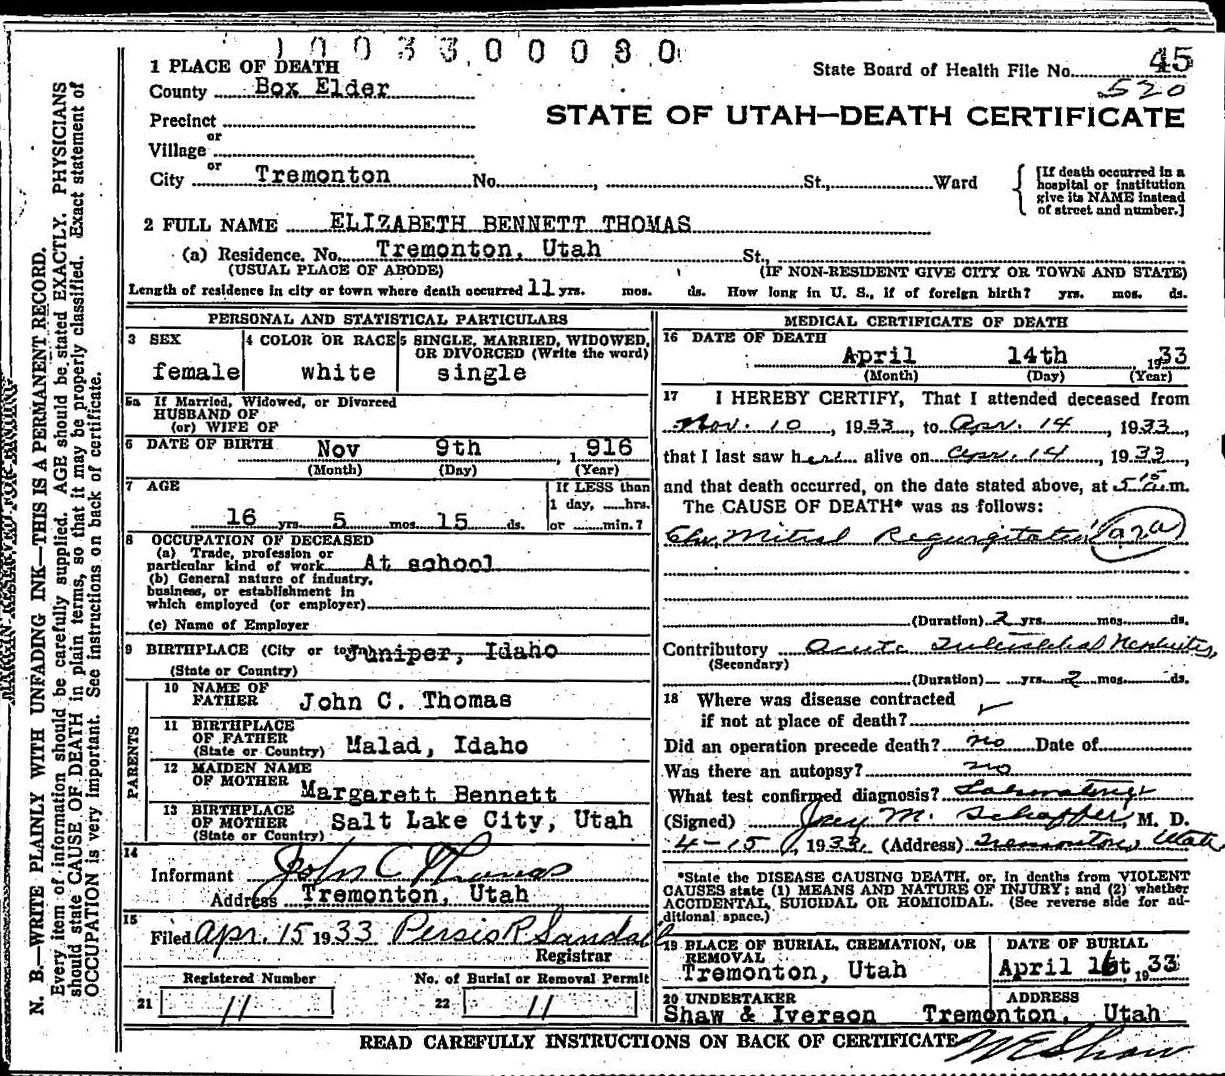 1 0 0 3 3 0 0 0 8 0
1 PLACE OF DEATH
County Box Elder
State Board of Health File No. 45
520
STATE OF UTAH—DEATH CERTIFICATE
Precinct
or
Village
or
City Tremonton No. , St., Ward
[If death occurred in a hospital or institution give its NAME instead of street and number.]
2 FULL NAME ELIZABETH BENNETT THOMAS
(a) Residence. No. Tremonton, Utah St.
(USUAL PLACE OF ABODE) (IF NON-RESIDENT GIVE CITY OR TOWN AND STATE)
Length of residence in city or town where death occurred 11 yrs. mos. ds. How long in U. S., if of foreign birth? yrs. mos. ds.
PERSONAL AND STATISTICAL PARTICULARS
3 SEX
female
4 COLOR OR RACE
white
5 SINGLE, MARRIED, WIDOWED, OR DIVORCED (Write the word)
single
5a If Married, Widowed, or Divorced
HUSBAND OF
(or) WIFE OF
6 DATE OF BIRTH Nov 9th , 1916
(Month) (Day) (Year)
7 AGE
16 yrs. 5 mos. 15 ds.
If LESS than
1 day, hrs.
or min.?
8 OCCUPATION OF DECEASED
(a) Trade, profession or
particular kind of work At school
(b) General nature of industry,
business, or establishment in
which employed (or employer)
(c) Name of Employer
9 BIRTHPLACE (City or town) Juniper, Idaho
(State or Country)
PARENTS
10 NAME OF
FATHER John C. Thomas
11 BIRTHPLACE
OF FATHER
(State or Country) Malad, Idaho
12 MAIDEN NAME
OF MOTHER Margarett Bennett
13 BIRTHPLACE
OF MOTHER
(State or Country) Salt Lake City, Utah
14
Informant John C Thomas
Address Tremonton, Utah
15
Filed Apr. 15 1933 Persis R Sandall
Registrar
Registered Number No. of Burial or Removal Permit
21 11 22 11
MEDICAL CERTIFICATE OF DEATH
16 DATE OF DEATH
April 14th 1933
(Month) (Day) (Year)
17 I HEREBY CERTIFY, That I attended deceased from
Nov. 10, 1933, to Apr. 14, 1933,
that I last saw her alive on Apr. 14, 1933,
and that death occurred, on the date stated above, at 5 15 a.m.
The CAUSE OF DEATH* was as follows:
Chr. Mitral Regurgitation 92a
(Duration) 2 yrs. mos. ds.
Contributory Acute Nephritis,
(Secondary)
(Duration) yrs. 2 mos. ds.
18 Where was disease contracted
if not at place of death?
Did an operation precede death? no Date of
Was there an autopsy? no
What test confirmed diagnosis? Laboratory
(Signed) Jay M. Schaffer, M. D.
4-15, 1933. (Address) Tremonton, Utah
*State the DISEASE CAUSING DEATH, or, in deaths from VIOLENT
CAUSES state (1) MEANS AND NATURE OF INJURY; and (2) whether
ACCIDENTAL, SUICIDAL OR HOMICIDAL. (See reverse side for ad-
ditional space.)
19 PLACE OF BURIAL, CREMATION, OR
REMOVAL
Tremonton, Utah
DATE OF BURIAL
April 16t, 1933
20 UNDERTAKER ADDRESS
Shaw & Iverson Tremonton, Utah
READ CAREFULLY INSTRUCTIONS ON BACK OF CERTIFICATE
W E Shaw
MARGIN RESERVED FOR BINDING
N. B.—WRITE PLAINLY WITH UNFADING INK—THIS IS A PERMANENT RECORD.
Every item of information should be carefully supplied. AGE should be stated EXACTLY. PHYSICIANS
should state CAUSE OF DEATH in plain terms, so that it may be properly classified. Exact statement of
OCCUPATION is very important. See instructions on back of certificate.